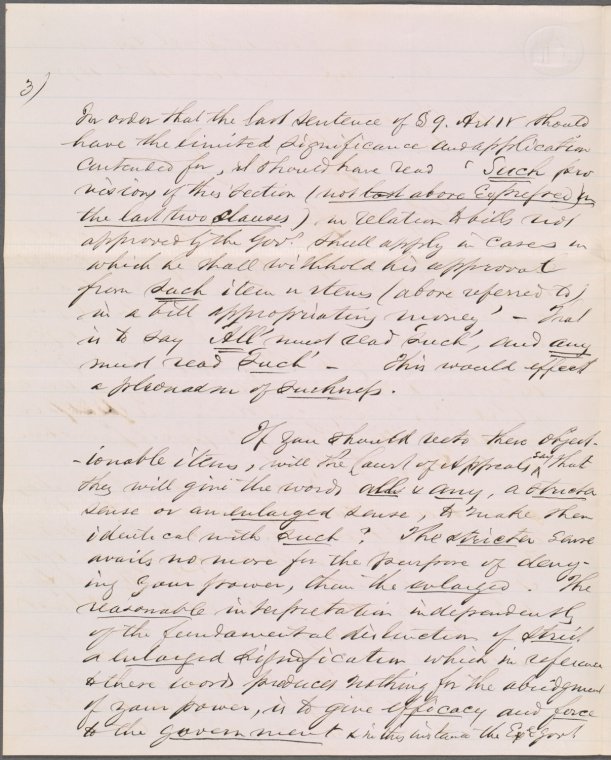 3)
In order that the last sentence of § 9. Art IV should
have the limited significance and application
contended for, it should have read 'Such pro
visions of this section (not above Expressed in
the last two clauses) in relation to bills not
approved by the Gov. shall apply in cases in
which he shall withhold his approval
from such item or items (above referred to)
in a bill appropriating money' – That
is to say All' must read Such', and any
must read Such' – This would effect
a of suchness.
If you should veto these object-
-ionable items, will the Court of Appeals say that
they will give the words all & any, a stricter
sense or an enlarged sense, to make them
identical with such? The stricter sense
avails no more for the purpose of deny-
ing your power, than the enlarged. The
reasonable interpretation independently
of the fundamental distinction of strict
& enlarged signification which in reference
to these words produces nothing for the abridgment
of your power, is to give efficacy and force
to the government & in this instance the Exe Govt